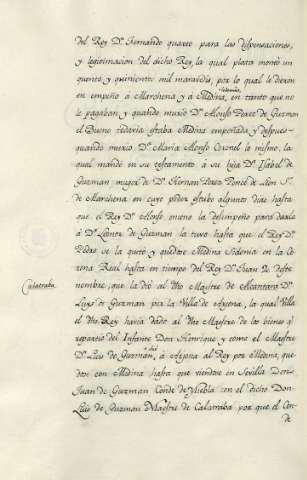 del Rey D.n Fernando quarto para las dispensaciones,
y legitimacion del dicho Rey, la qual plata montó un
quento y quinientos mil maravedis, por lo qual le dieron
en empeño á Marchena y á Medina Sidonia, en tanto que no
le pagaban y quando murió D.n Alonso Perez de Guzman
el Bueno todavia estaba Medina empeñada y despues
quando murio D.ña Maria Alonso Coronel lo mismo, la
qual mandó en su testamento á su hija D.ña Isabel de
Guzman muger de D.n Hernan Perez Ponce de Leon S.r
de Marchena en cuyo poder estubo algunos dias hasta
que el Rey D.n Alonso onceno la desempeño para darla
á D.ña Leonor de Guzman la tuvo hasta que el Rey D.n
Pedro se la quitó y quedose Medina Sidonia en la Co
rona Real hasta en tiempo del Rey D.n Juan 2.o deste
nombre, que la dió al dho Maestre de Alcantara D.n
Luys de Guzman por la Villa de la qual Villa
el dho Rey havia dado al dho Maestre de los bienes q.e
repartió del Infante Don Henrique y como el Maestre
D.n Luis de Guzman, dió á al Rey por Medina, que
dose con Medina hasta que viendose en Sevilla Don
Juan de Guzman Conde de Niebla con el dicho Don
Luis de Guzman Maestre de Calatraba por que el Con
de
Calatraba